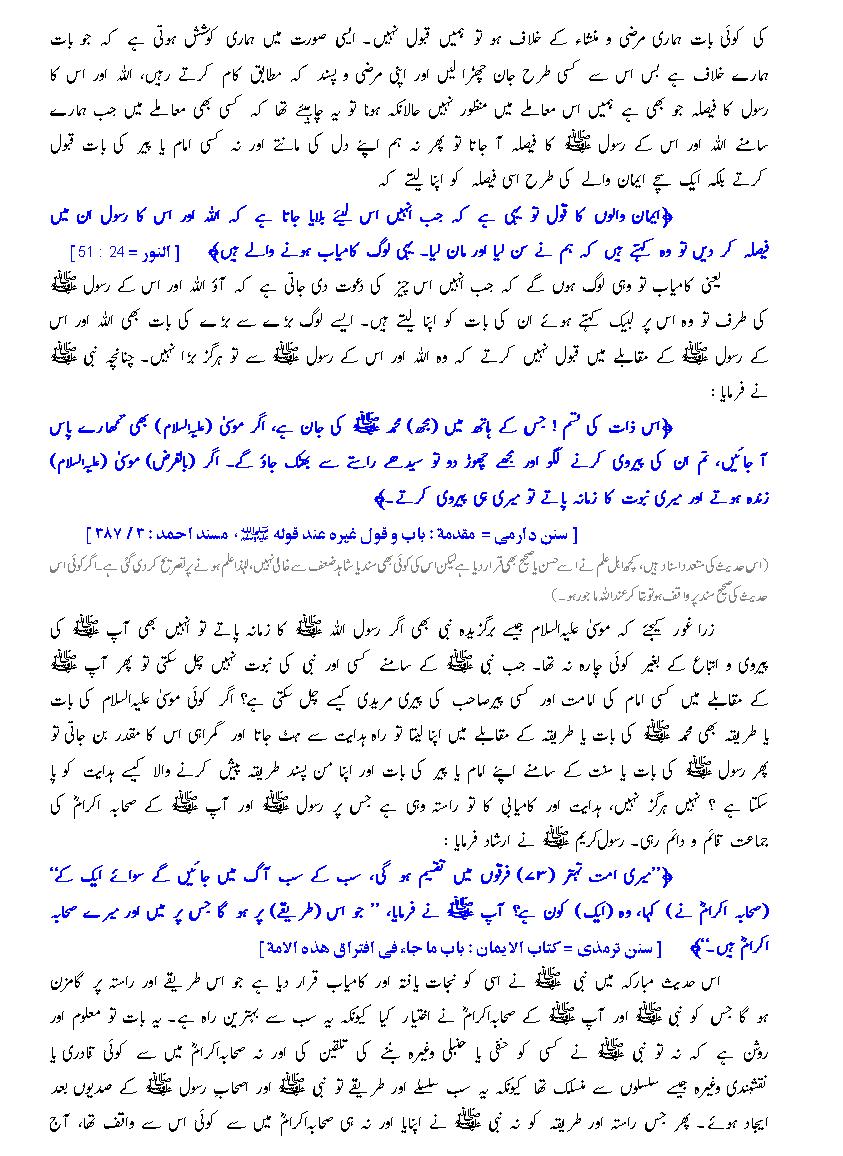 کی کوئی بات ہماری مرضی و منشاء کے خلاف ہو تو ہمیں قبول نہیں۔ ایسی صورت میں ہماری کوشش ہوتی ہے کہ جو بات
ہمارے خلاف ہے بس اس سے کسی طرح جان چھڑا لیں اور اپنی مرضی و پسند کہ مطابق کام کرتے رہیں، اللہ اور اس کا
رسول کا فیصلہ جو بھی ہے ہمیں اس معاملے میں منظور نہیں حالانکہ ہونا تو یہ چاہیئے تھا کہ کسی بھی معاملے میں جب ہمارے
سامنے اللہ اور اس کے رسول ﷺ کا فیصلہ آ جاتا تو پھر نہ ہم اپنے دل کی مانتے اور نہ کسی امام یا پیر کی بات قبول
کرتے بلکہ ایک سچے ایمان والے کی طرح اسی فیصلہ کو اپنا لیتے کہ
﴿ایمان والوں کا قول تو یہی ہے کہ جب انہیں اس لیئے بلایا جاتا ہے کہ اللہ اور اس کا رسول ان میں
فیصلہ کر دیں تو وہ کہتے ہیں کہ ہم نے سن لیا اور مان لیا۔ یہی لوگ کامیاب ہونے والے ہیں﴾ [ النور = 24 : 51 ]
یعنی کامیاب تو وہی لوگ ہوں گے کہ جب انہیں اس چیز کی دعوت دی جاتی ہے کہ آؤ اللہ اور اس کے رسول ﷺ
کی طرف تو وہ اس پر لبیک کہتے ہوئے ان کی بات کو اپنا لیتے ہیں۔ ایسے لوگ بڑے سے بڑے کی بات بھی اللہ اور اس
کے رسول ﷺ کے مقابلے میں قبول نہیں کرتے کہ وہ اللہ اور اس کے رسول ﷺ سے تو ہرگز بڑا نہیں۔ چنانچہ نبی ﷺ
نے فرمایا :
﴿اس ذات کی قسم ! جس کے ہاتھ میں (مجھ) محمد ﷺ کی جان ہے، اگر موسیٰ (علیہ السلام) بھی تمھارے پاس
آ جائیں، تم ان کی پیروی کرنے لگو اور مجھے چھوڑ دو تو سیدھے راستے سے بھٹک جاؤ گے۔ اگر (بالفرض) موسیٰ (علیہ السلام)
زندہ ہوتے اور میری نبوت کا زمانہ پاتے تو میری ہی پیروی کرتے۔﴾
[ سنن دارمی = مقدمة : باب و قول غیرہ عند قولہ ﷺ، مسند احمد : ٣ / ٣٨٧ ]
(اس حدیث کی متعدد اسناد ہیں، کچھ اہل علم نے اسے حسن یا صحیح بھی قرار دیا ہے لیکن اس کی کوئی بھی سند یا شاہد ضعف سے خالی نہیں، لہٰذا علم ہونے پر تصریح کر دی گئی ہے۔ اگر کوئی اس
حدیث کی صحیح سند پر واقف ہو تو بتا کر عنداللہ ماجور ہو۔)
زرا غور کیجئے کہ موسیٰ علیہ السلام جیسے برگزیدہ نبی بھی اگر رسول اللہ ﷺ کا زمانہ پاتے تو انہیں بھی آپ ﷺ کی
پیروی و اتباع کے بغیر کوئی چارہ نہ تھا۔ جب نبی ﷺ کے سامنے کسی اور نبی کی نبوت نہیں چل سکتی تو پھر آپ ﷺ
کے مقابلے میں کسی امام کی امامت اور کسی پیرصاحب کی پیری مریدی کیسے چل سکتی ہے؟ اگر کوئی موسیٰ علیہ السلام کی بات
یا طریقہ بھی محمد ﷺ کی بات یا طریقہ کے مقابلے میں اپنا لیتا تو راہ ہدایت سے ہٹ جاتا اور گمراہی اس کا مقدر بن جاتی تو
پھر رسول ﷺ کی بات یا سنت کے سامنے اپنے امام یا پیر کی بات اور اپنا من پسند طریقہ پیش کرنے والا کیسے ہدایت کو پا
سکتا ہے ؟ نہیں ہرگز نہیں، ہدایت اور کامیابی کا تو راستہ وہی ہے جس پر رسول ﷺ اور آپ ﷺ کے صحابہ اکرامؓ کی
جماعت قائم و دائم رہی۔ رسول کریم ﷺ نے ارشاد فرمایا :
﴿”میری امت تہتر (۷۳) فرقوں میں تقسیم ہو گی، سب کے سب آگ میں جائیں گے سوائے ایک کے“
(صحابہ اکرامؓ نے) کہا، وہ (ایک) کون ہے؟ آپ ﷺ نے فرمایا، ” جو اس (طریقے) پر ہو گا جس پر میں اور میرے صحابہ
اکرامؓ ہیں۔“﴾ [ سنن ترمذی = کتاب الایمان : باب ما جاء فی افتراق ھذہ الامة ]
اس حدیث مبارکہ میں نبی ﷺ نے اسی کو نجات یافتہ اور کامیاب قرار دیا ہے جو اس طریقے اور راستہ پر گامزن
ہو گا جس کو نبی ﷺ اور آپ ﷺ کے صحابہ اکرامؓ نے اختیار کیا کیونکہ یہ سب سے بہترین راہ ہے۔ یہ بات تو معلوم اور
روشن ہے کہ نہ تو نبی ﷺ نے کسی کو حنفی یا حنبلی وغیرہ بننے کی تلقین کی اور نہ صحابہ اکرامؓ میں سے کوئی قادری یا
نقشبندی وغیرہ جیسے سلسلوں سے منسلک تھا کیونکہ یہ سب سلسلے اور طریقے تو نبی ﷺ اور اصحاب رسول ﷺ کے صدیوں بعد
ایجاد ہوئے۔ پھر جس راستہ اور طریقہ کو نہ نبی ﷺ نے اپنایا اور نہ ہی صحابہ اکرامؓ میں سے کوئی اس سے واقف تھا، آج